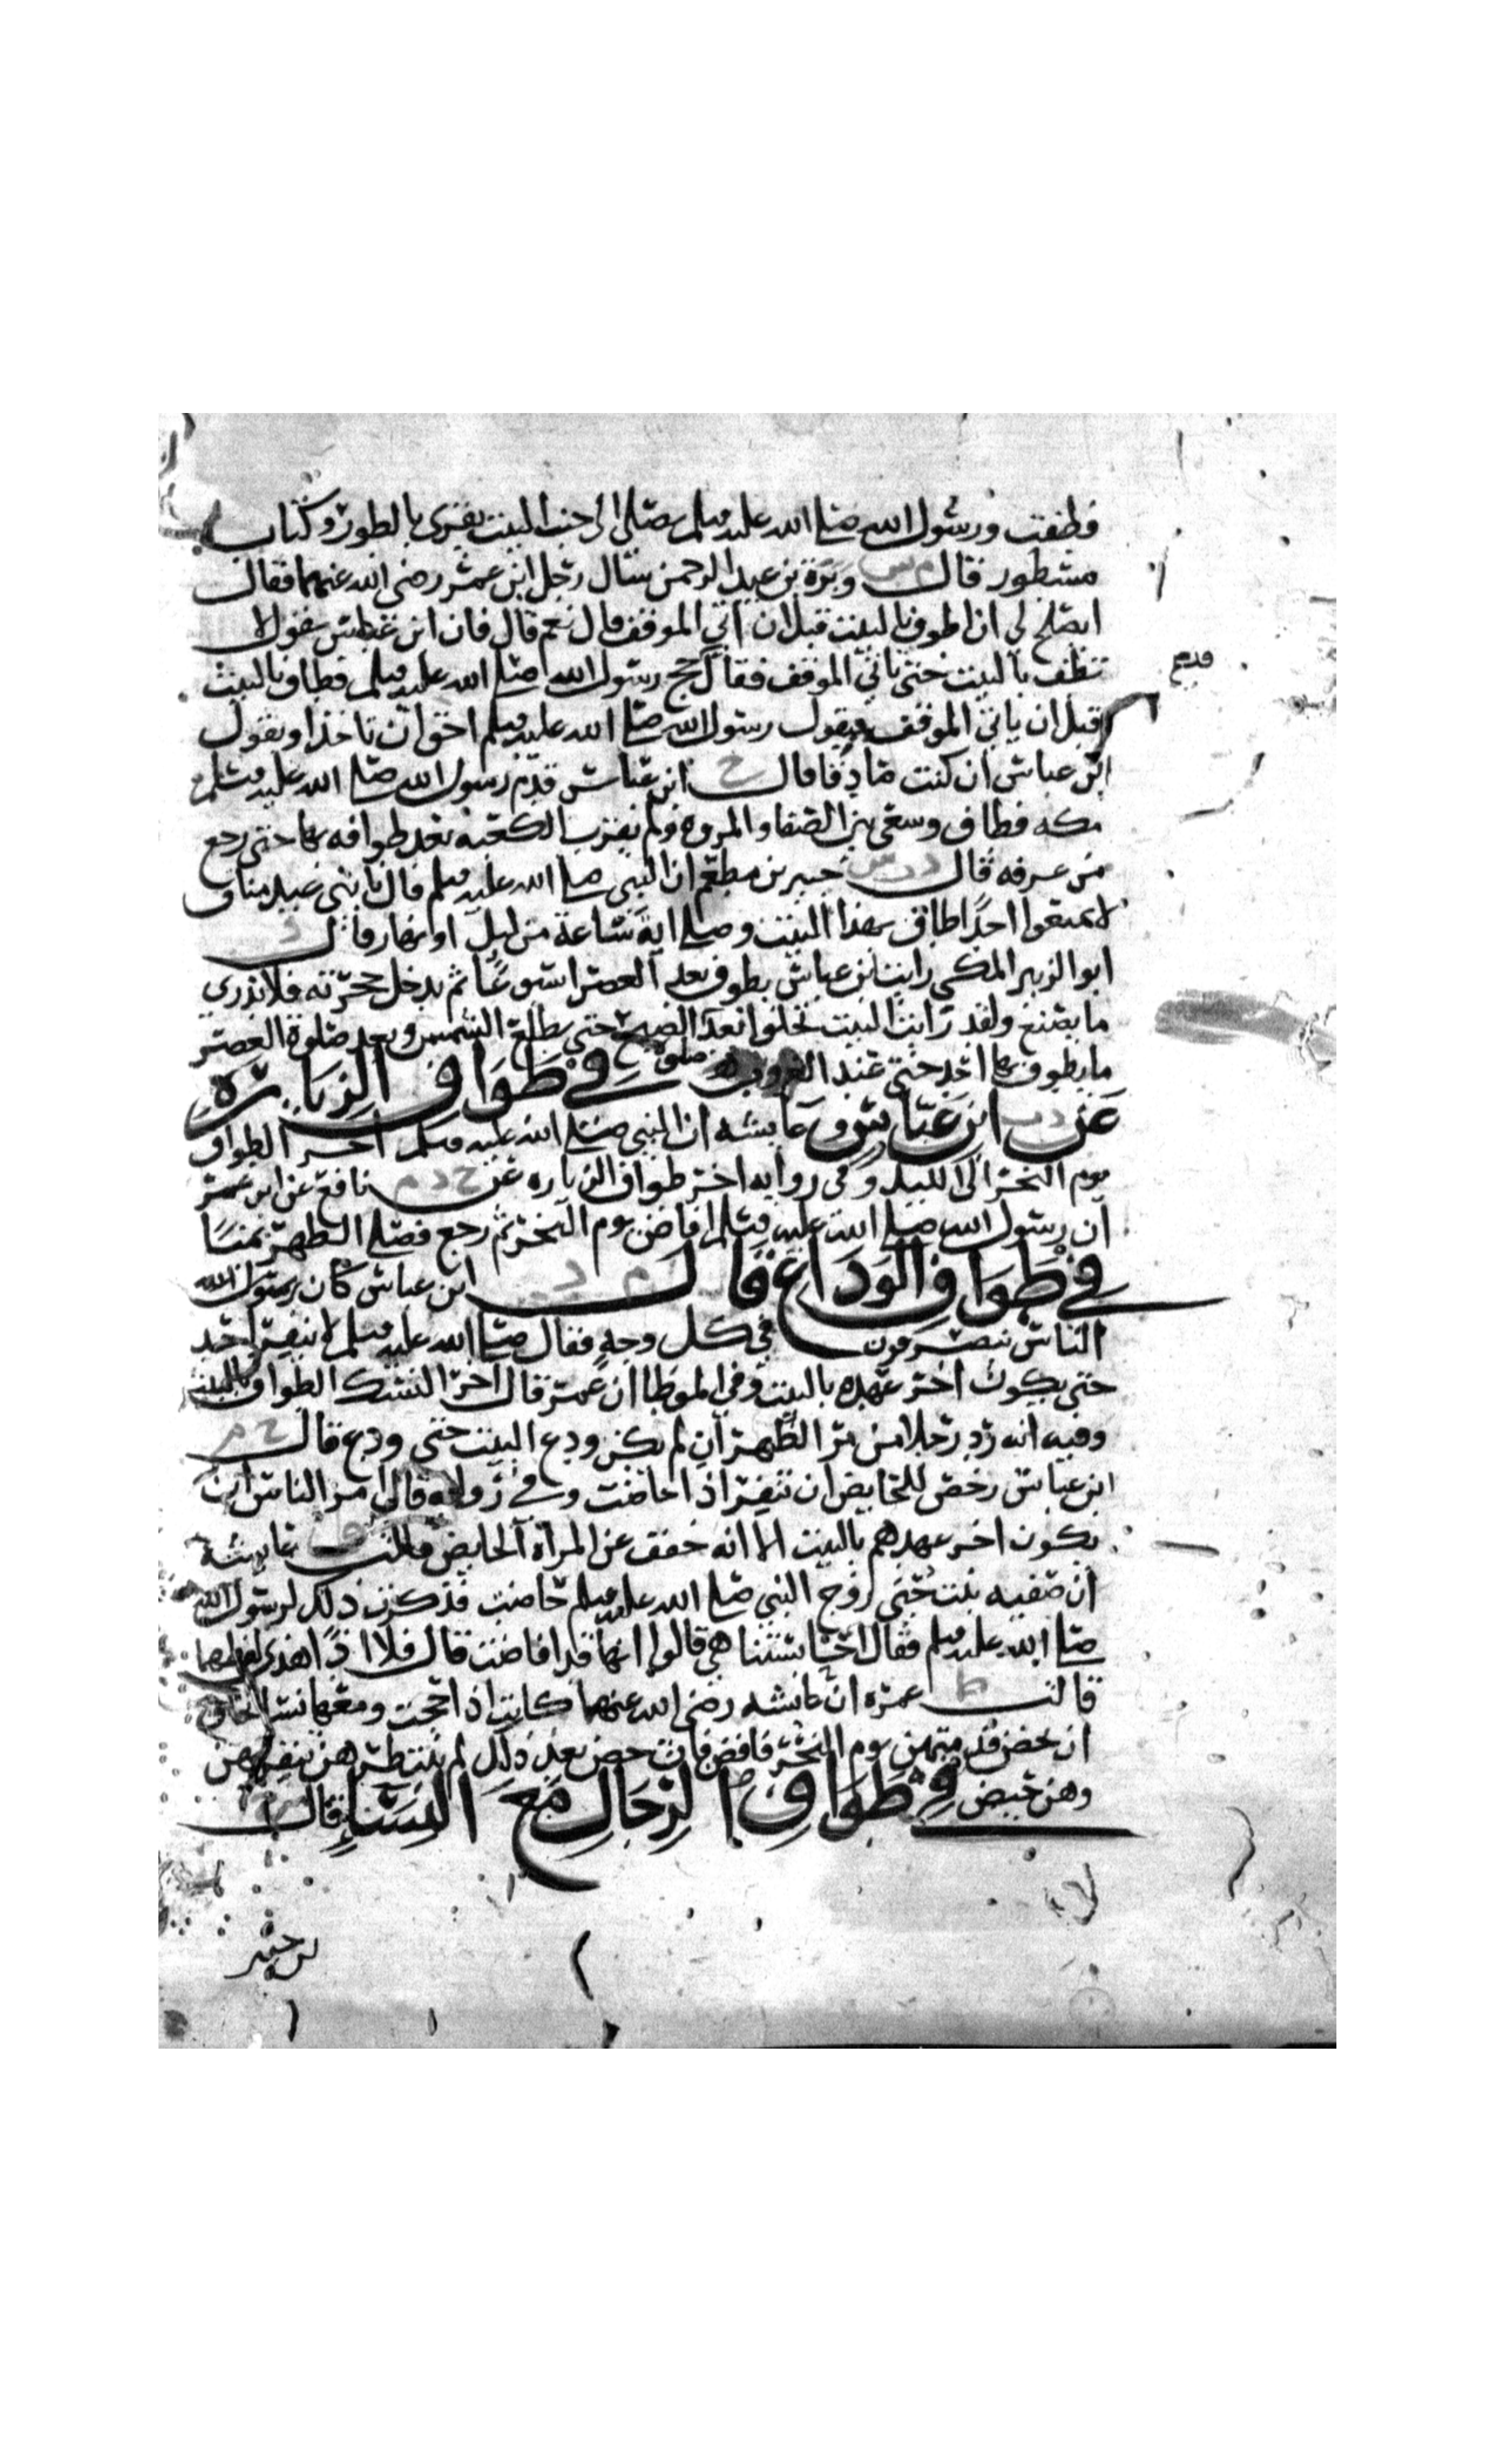 فطفت ورسول الله صلى الله عليه وسلم يصلي الى جنب البيت يقرى بالطور وكتاب
مسطور قال م س وبرة بن عبد الرحمن سال رجل ابن عمر رضي الله عنهما فقال
ايصلح لي ان اطوف بالبيت قبل ان اتي الموقف قال نعم قال فان ابن عباس يقول لا
تطف بالبيت حتى تاتي الموقف فقال حج رسول الله صلى الله عليه وسلم فطاف بالبيت
قبل ان ياتي الموقف فبقول رسول الله صلى الله عليه وسلم احق ان تاخذ او بقول
ابن عباس ان كنت صادقا قال خ ابن عباس قدم رسول الله صلى الله عليه وسلم
مكه فطاف وسعى بين الصفا والمروه ولم يقرب الكعبه بعد طوافه بها حتى رجع
من عرفه قال د ت س جبير بن مطعم ان النبي صلى الله عليه وسلم قال يا بني عبد مناف
لا تمنعوا احدا طاف بهذا البيت وصلى اية ساعة من ليل او نهار قال
ابو الزبير المكي رايت ابن عباس يطوف بعد العصر اسبوعا ثم يدخل حجرته فلا ندري
ما يصنع ولقد رايت البيت يخلوا بعد الصبح حتى يطلع الشمس وبعد صلوة العصر
ما يطوف بها احد حتى عند الغروب
صلوة
في طواف الزيارة
عن د ت ابن عباس وعايشه ان النبي صلى الله عليه وسلم اخر الطواف
يوم النحر الى الليل وفي روايه اخر طواف الزياره عن خ د م نافع عن ابن عمر
ان رسول الله صلى الله عليه وسلم افاض يوم النحر ثم رجع فصلى الظهر بمنى
في طواف الوداع قال م د ابن عباس كان رسول الله
الناس ينصرفون في كل وجه فقال صلى الله عليه وسلم لا ينفر احد
حتى يكون اخر عهده بالبيت وفي الموطا ان عمر قال اخر النسك الطواف بالبيت
وفيه انه رد رجلا من مر الظهران لم يكن ودع البيت حتى ودع قال خ م
ابن عباس رخص للحايض ان تنفر اذا حاضت وفي روايه قال امر الناس ان
يكون اخر عهدهم بالبيت الا انه خفف عن المراة الحايض قالت عايشة
ان صفيه بنت حيي زوج النبي صلى الله عليه وسلم حاضت فذكرت ذلك لرسول الله
صلى الله عليه وسلم فقال احابستنا هي قالوا انها قد افاضت قال فلا اذا
قالت ط عمره ان عائشه رضي الله عنها كانت اذا حجت ومعها نسا تخاف
ان يحضن قدمتهن يوم النحر فافضن فان حضن بعد ذلك لم تنتظرهن تنفر بهن
وهن حيض في طواف الرجال مع النساء قال
قديم
ابن جريج